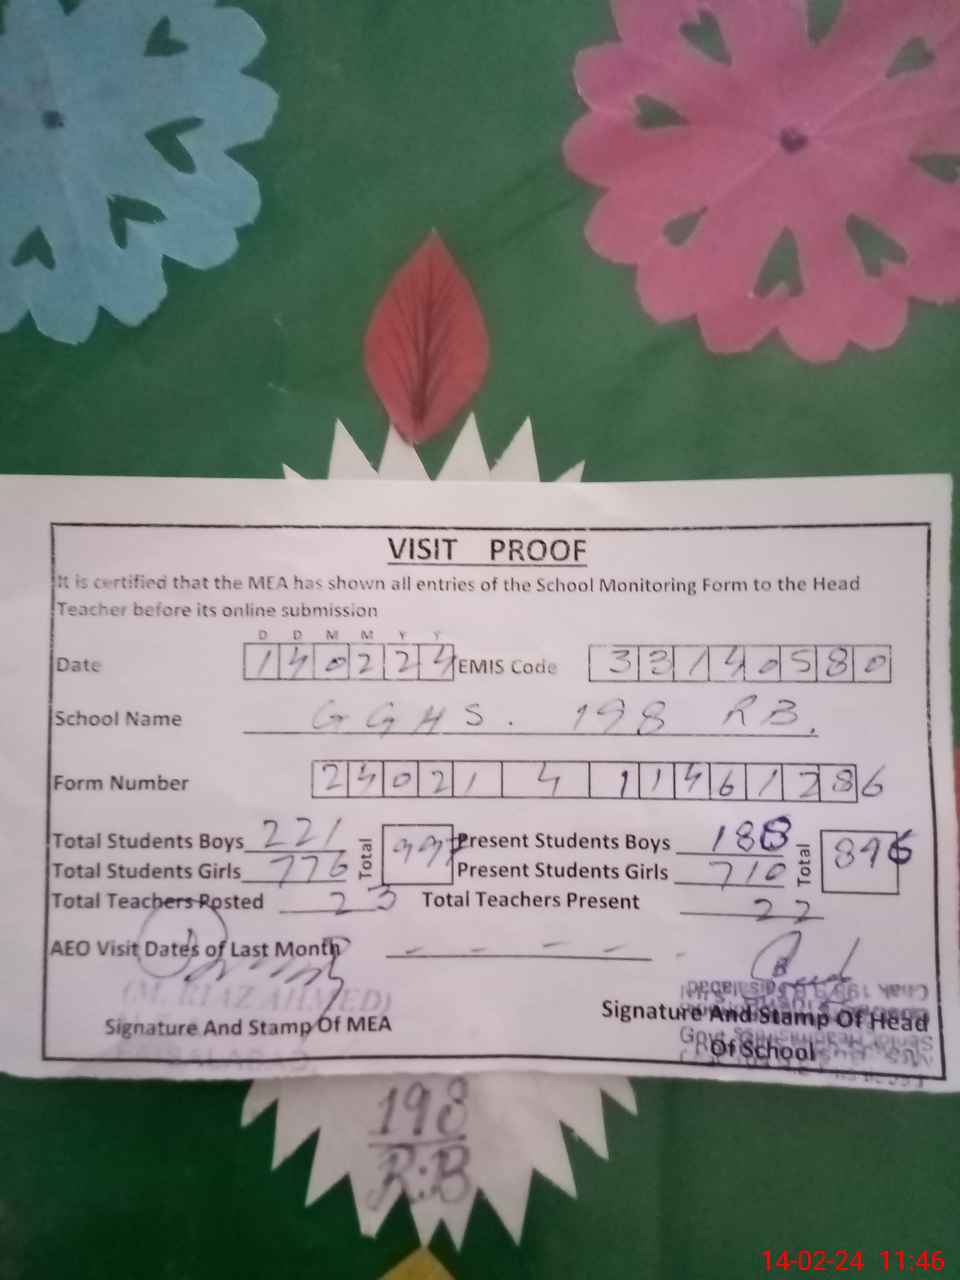 VISIT PROOF
It is certified that the MEA has shown all entries of the School Monitoring Form to the Head
Teacher before its online submission
D D M M Y Y
Date 140224 EMIS Code 33140580
School Name GGHS. 198 RB.
Form Number 24021 4 11461286
Total Students Boys 221 Total 997 Present Students Boys 188 Total 896
Total Students Girls 776 Present Students Girls 710
Total Teachers Posted 23 Total Teachers Present 22
AEO Visit Dates of Last Month - - - -
(M. RIAZ AHMED)
Signature And Stamp Of MEA
Signature And Stamp Of Head
Of School
198
R.B
14-02-24 11:46